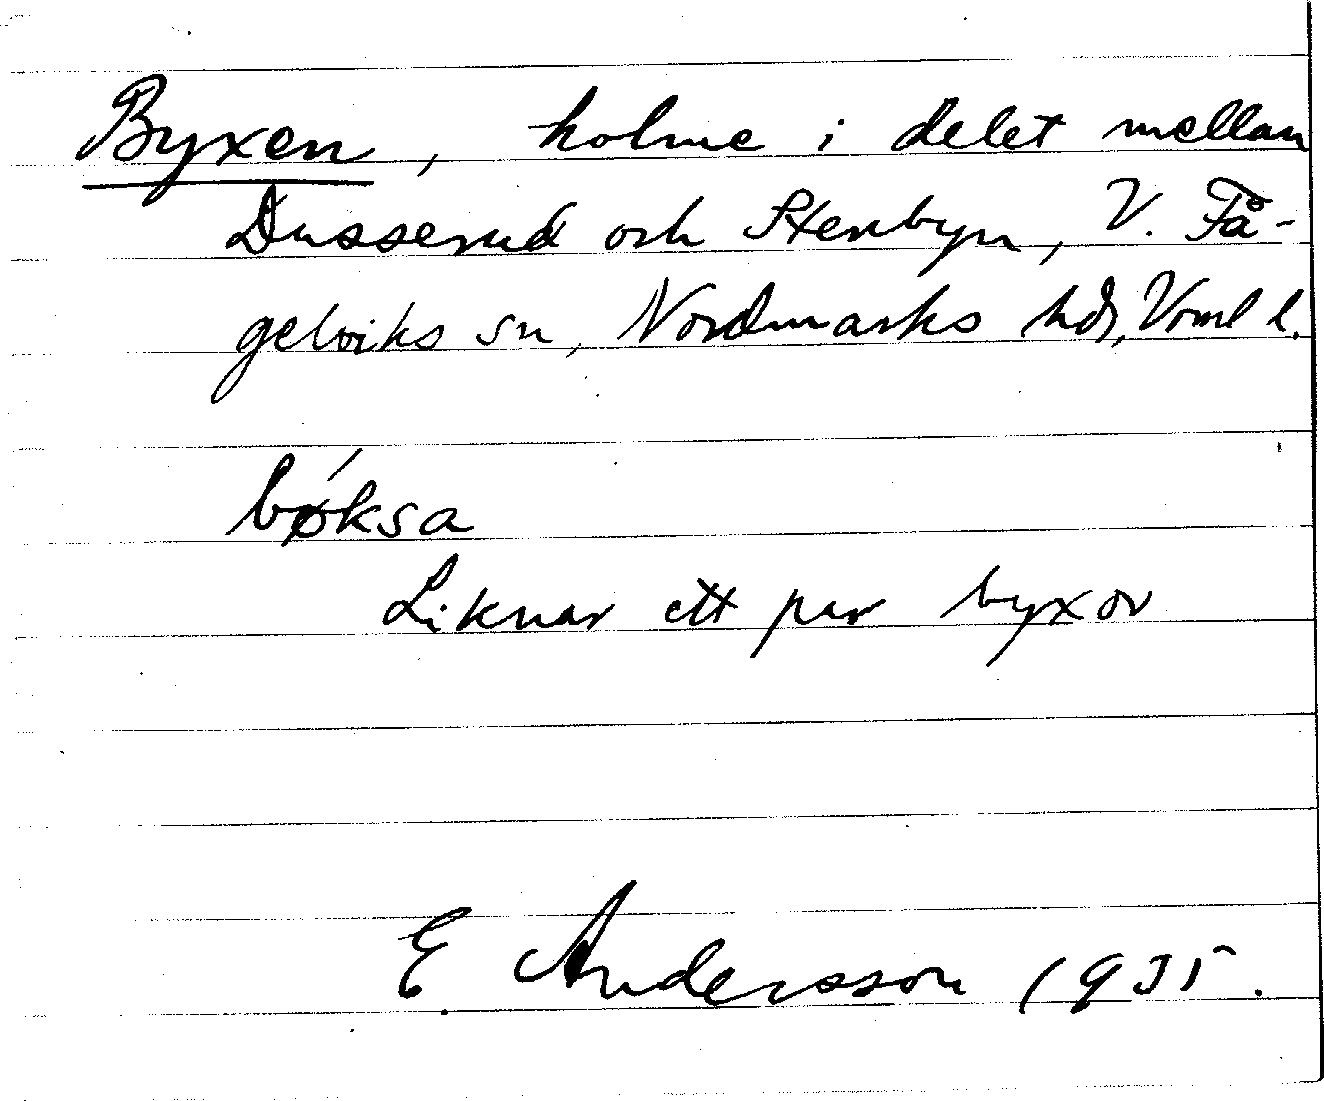 Byxen, holme i delet mellan
Dusserud och Stenbyn, V. Få-
gelviks sn, Nordmarks hd, Vrml l.
bø´ksa
Liknar ett par byxor
E. Andersson 1935.